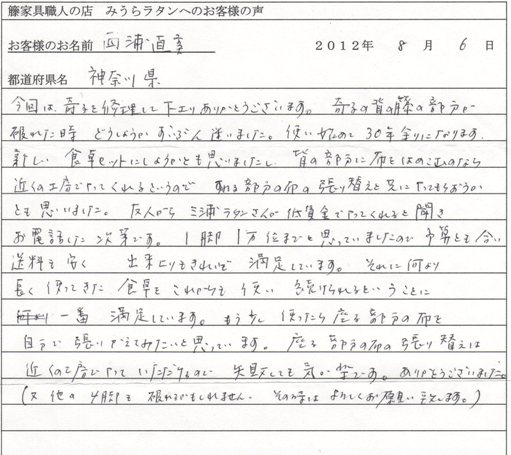 籐家具職人の店 みうらラタンへのお客様の声
お客様のお名前 西浦直美 2012年 8月 6日
都道府県名 神奈川県
今回は、椅子を修理して下さりありがとうございます。 椅子の背の籐の部分が
破れた時 どうしようか ずいぶん迷いました。使い始めて30年余りになります。
新しい 食卓セットにしようかとも思いましたし、背の部分に布をはめこむのなら
近くの工房でやってくれるというので 座る部分の布の張り替えと共にやってもらおうか
とも思いました。 友人から 三浦ラタンさんが低賃金でやってくれると聞き
お電話した次第です。1脚 1万位までと思っていましたので予算とも合い
送料も安く 出来上りもきれいで 満足しています。 それに何より
長く使ってきた 食卓を これからも 使い 続けられるということに
一番 満足しています。もう少し 使ったら座る部分の布を
自分で張りかえてみたいと思っています。 座る部分の布の張り替えは
近くの工房でやっていただけるので 失敗しても気が楽です。ありがとうございました。
(又 他の4脚も 破れるかもしれません。 その時は よろしくお願い致します。)